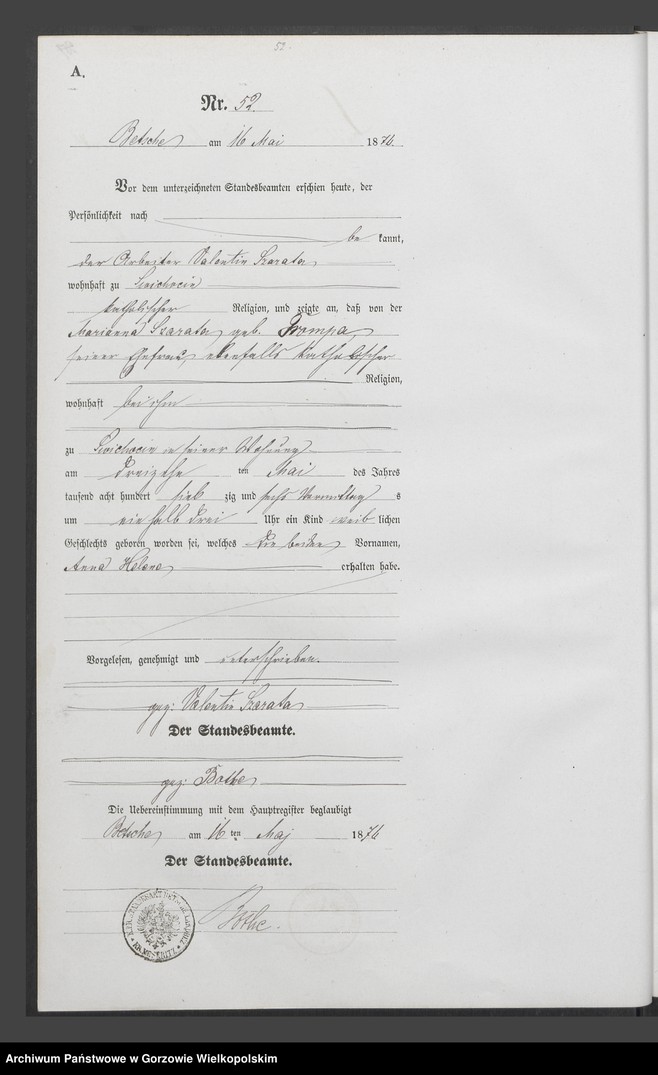 52.
A.
Nr. 52.
Betsche am 16 Mai 1876.
Vor dem unterzeichneten Standesbeamten erschien heute, der
Persönlichkeit nach
be kannt,
der Arbeiter Valentin Szarata,
wohnhaft zu
katholischer Religion, und zeigte an, daß von der
Marianna Szarata, geb. Trompa,
seiner Ehefrau, ebenfalls katholischer
Religion,
wohnhaft bei ihm
zu in seiner Wohnung
am dreizehn ten Mai des Jahres
tausend acht hundert sieb zig und sechs Vormittag s
um ein halb drei Uhr ein Kind weib lichen
Geschlechts geboren worden sei, welches die beiden Vornamen,
Anna Helena erhalten habe.
Vorgelesen, genehmigt und unterschrieben.
gez: Valentin Szarata
Der Standesbeamte.
gez: Bothe
Die Uebereinstimmung mit dem Hauptregister beglaubigt
Betsche am 16 ten Maj 1876
Der Standesbeamte.
Bothe.
Archiwum Państwowe w Gorzowie Wielkopolskim